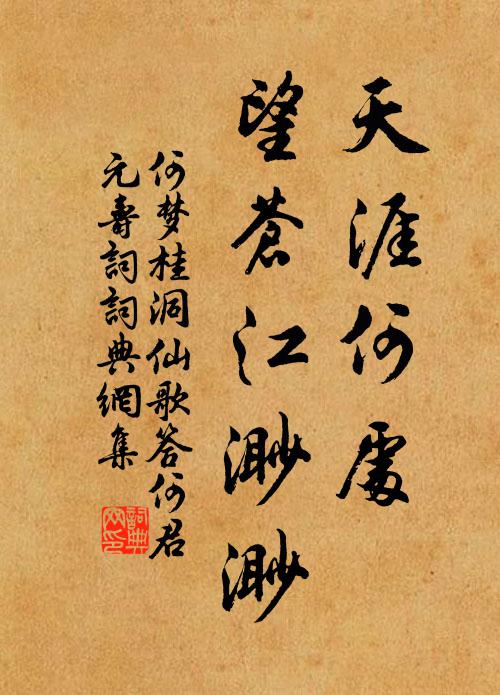 天涯何處
望蒼江渺渺
何梦桂洞仙歌答何君
元壽詞詞典網集
詞典
网印